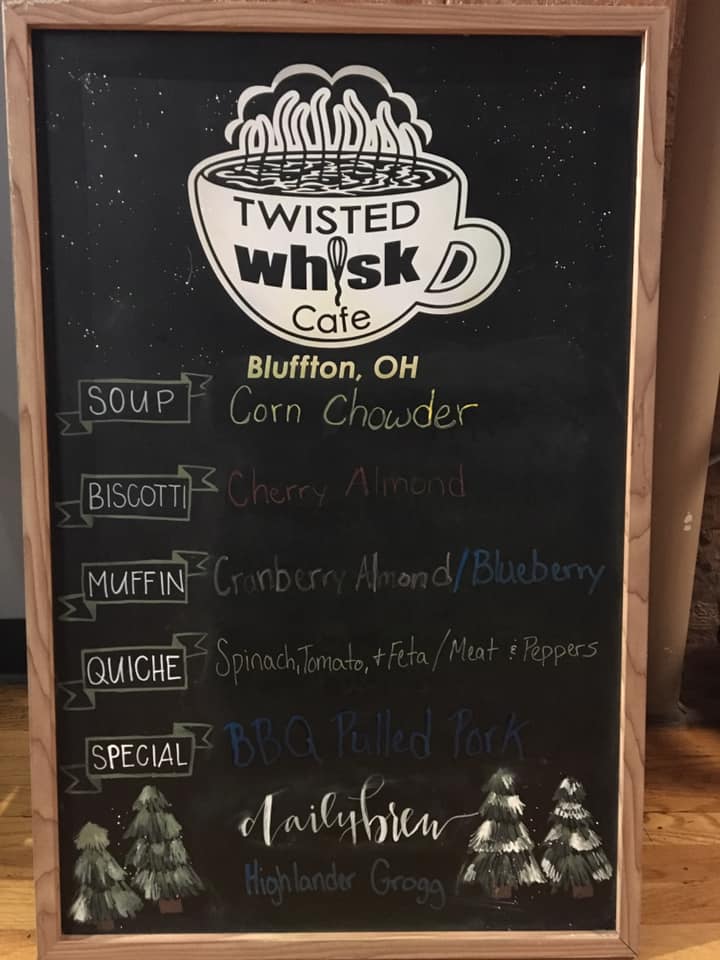 TWISTED
whisk
Cafe
Bluffton, OH
SOUP Corn Chowder
BISCOTTI Cherry Almond
MUFFIN Cranberry Almond/Blueberry
QUICHE Spinach, Tomato, + Feta / Meat & Peppers
SPECIAL BBQ Pulled Pork
daily brew
Highlander Grogg